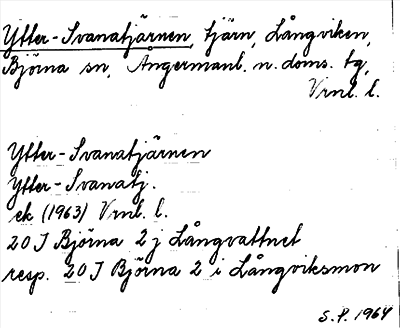 Ytter-Svanatjärnen, tjärn, Långviken,
Björna sn, Ångermanl. n. doms. tg,
Vrnl. l.
Ytter-Svanatjärnen
Ytter-Svanatj.
ek (1963) Vrnl. l.
20 J Björna 2 j Långvattnet
resp. 20 J Björna 2 i Långviksmon
S.P. 1964